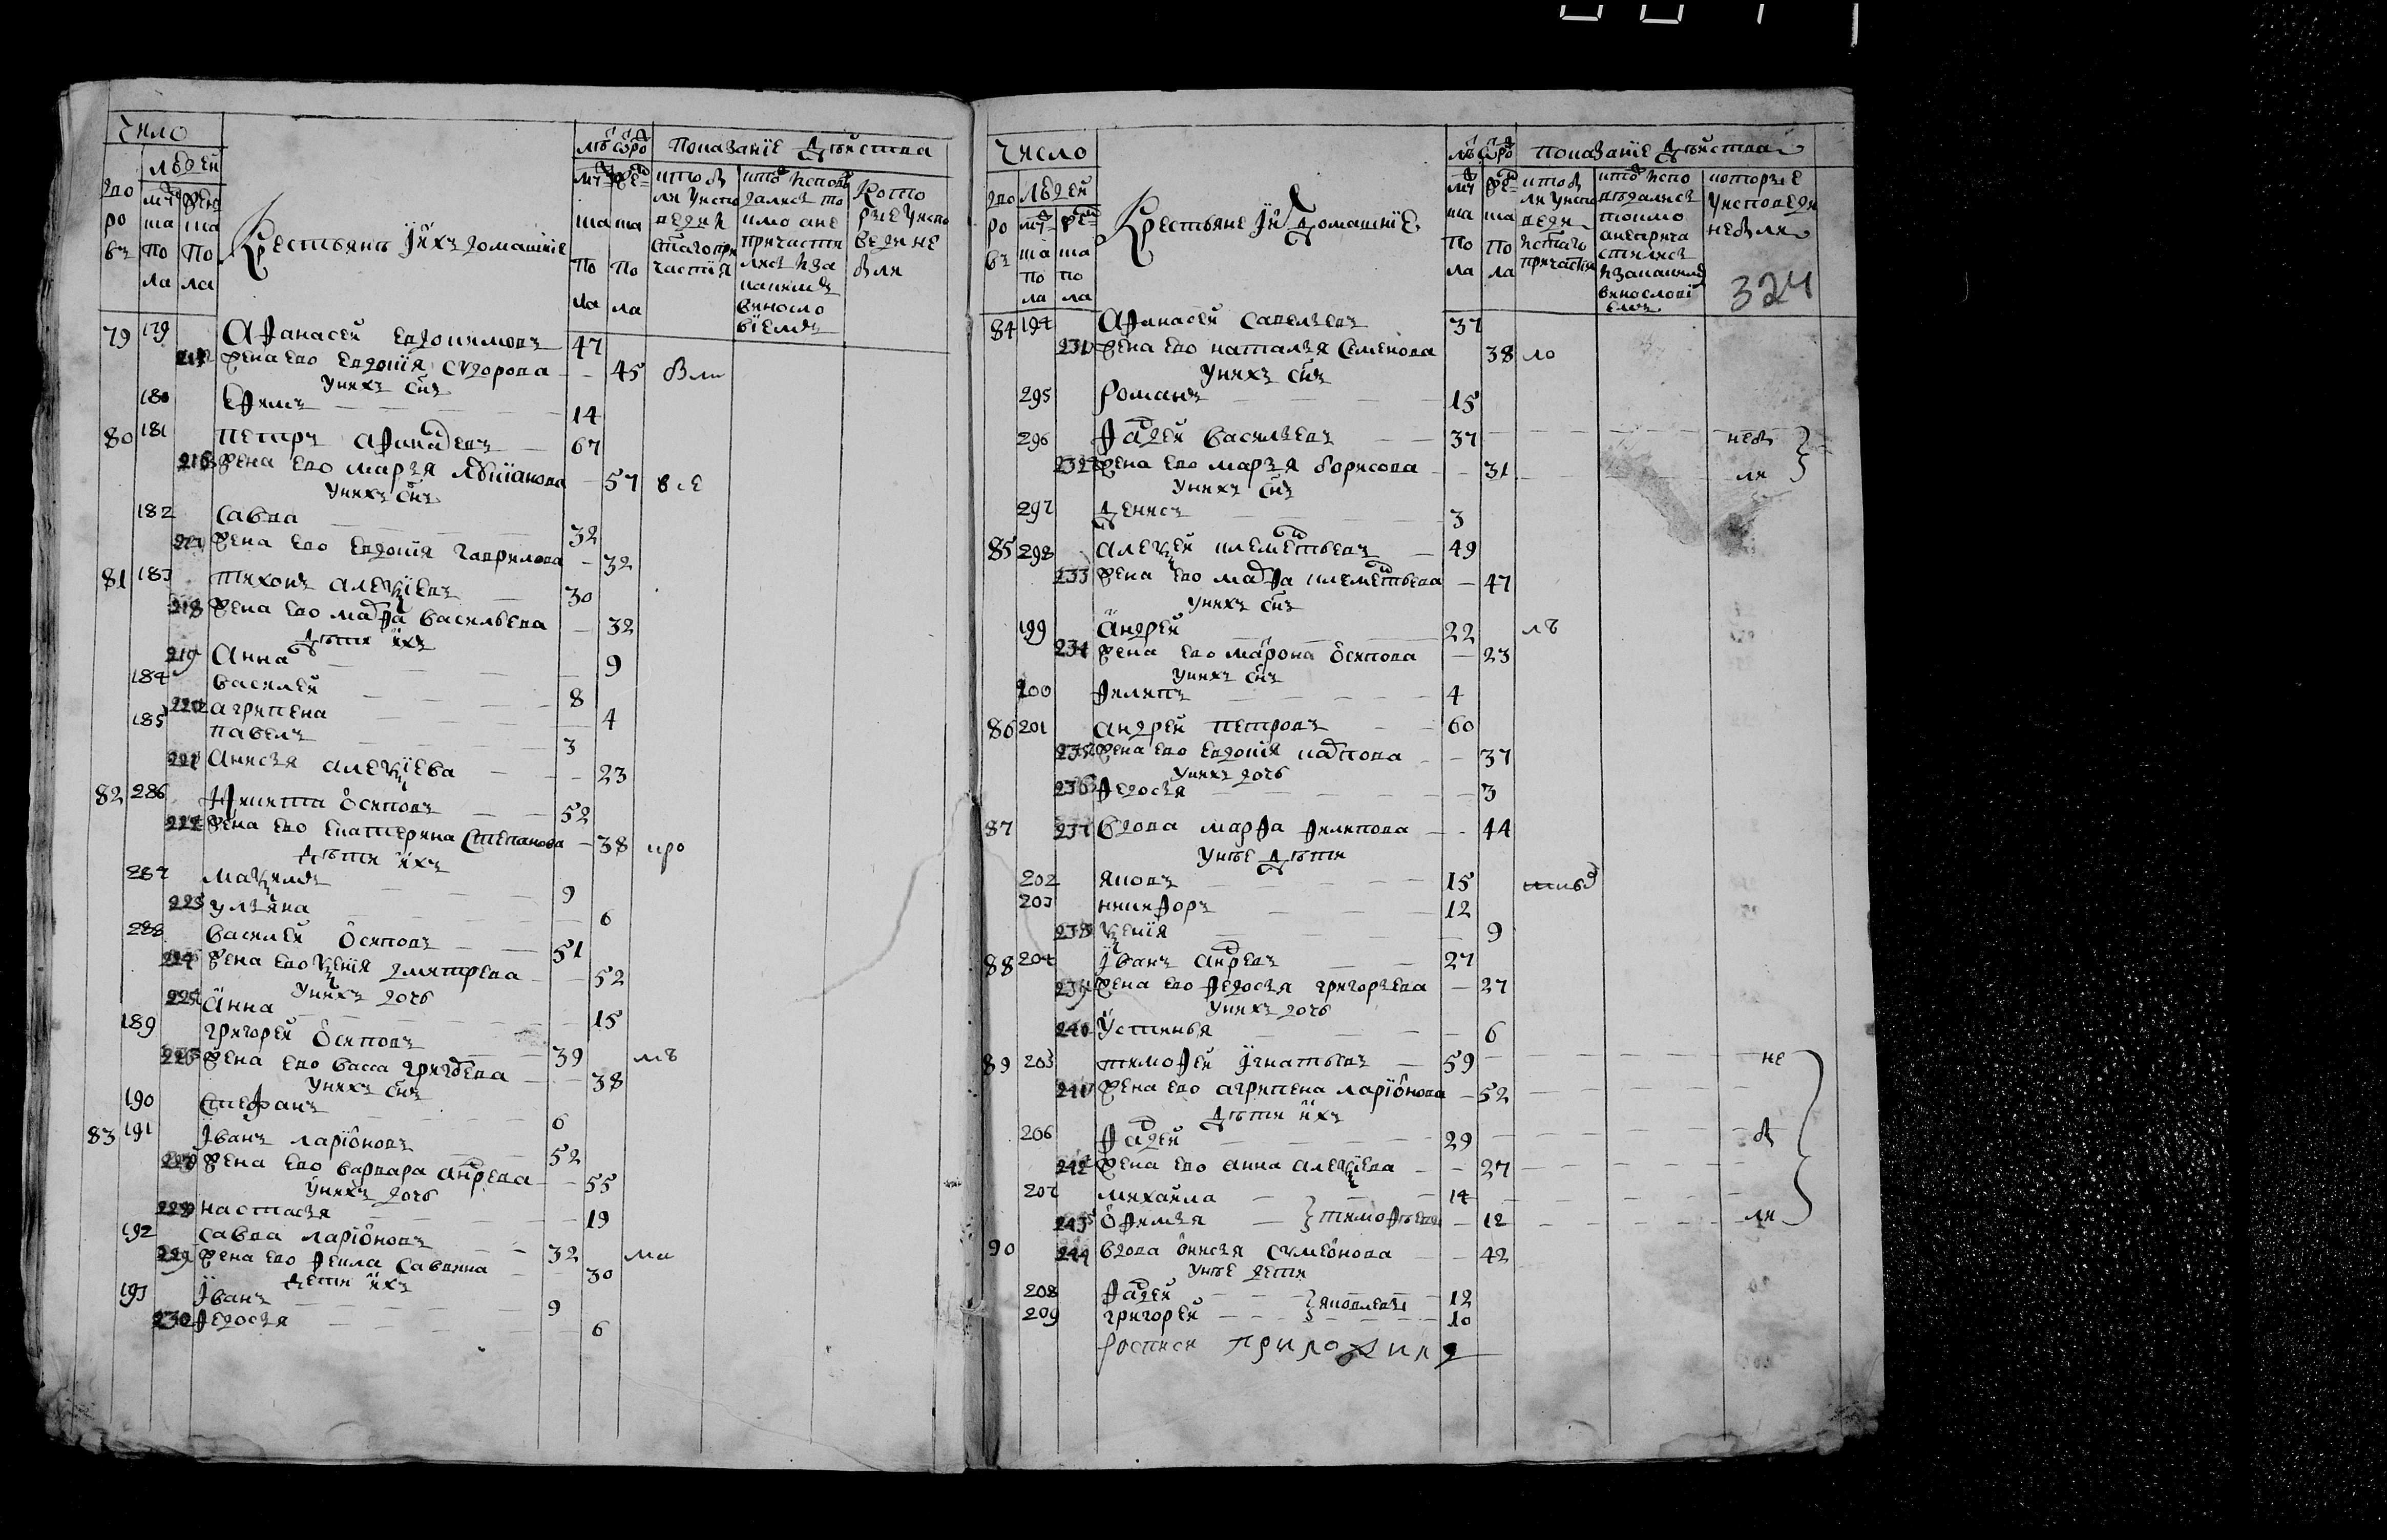 Число
людей
лѣт ѿ роду
Показанїе дѣйства
дворовъ
мужеска пола
женска пола
Крестьянѣ и ихъ домашнїе
мужеска пола
женска пола
кто были у исповеди и святаго причастия
кто исповедались токмо а не причастились и за каким винословїем
которые у исповеди не были
79 179 Афанасей Евдокимовъ 47
жена ево Евдокїя Сидорова 45 были
у нихъ сынъ
180 Ефимъ 14
80 181 Петръ Афонадевъ 67
216 жена ево Марья Лукиянова 57 все
у нихъ сынъ
182 Савва 32
жена ево Евдокїя Гаврилова 32
81 183 Тихонъ Алексїевъ 30
218 жена ево Марфа Васильева 32
дѣти ихъ
219 Анна 9
184 Василей 8
220 Агрипена 4
185 Павелъ 3
221 Анисья Алексїева 23
82 286 Никита Осиповъ 52
222 жена ево Екатерина Степанова 38 кро
дѣти ихъ
287 Максимъ 9
223 Ульяна 6
288 Василей Осиповъ 51
224 жена ево Ксенїя Дмитрева 52
у нихъ дочь
225 Анна 15
189 Григорей Осиповъ 39 мѣ
226 жена ево Васса Григорева 38
у нихъ сынъ
190 Стефанъ 6
83 191 Иванъ Ларїоновъ 52
227 жена ево Варвара Андрева 55
у нихъ дочь
228 Настасья 19
192 Савва Ларїоновъ 32 ма
229 жена ево Фекла Саввина 30
дети ихъ
193 Иванъ 9
230 Федосья 6
Число
людей
лѣт ѿ роду
показанїе дѣйства
дворовъ
мужеска пола
женска пола
Крестьяне и их домашнїе
мужеска пола
женска пола
кто были у исповеди и святаго причастия
кто исповѣдались токмо а не причастились и за каким винословїем
которые у исповеди не были
324
84 194 Афанасей Савельевъ 37
231 жена ево Наталья Семенова 38 ло
у нихъ сынъ
295 Романъ 15
296 Фадей Васильевъ 37 не бы
232 жена ево Марья Борисова 31 ли
у нихъ сынъ
297 Денисъ 3
85 298 Алексей Клементьевъ 49
233 жена ево Марфа Клементьева 47
у нихъ сынъ
199 Андрей 22 лѣ
234 жена ево Матрона Осипова 23
у нихъ сынъ
200 Филипъ 4
86 201 Андрей Петровъ 60
235 жена ево Евдокїя Карпова 37
у нихъ дочь
236 Федосья 3
87 237 вдова Марфа Филипова 44
у нѣе дѣти
202 Яковъ 15
203 Никифоръ 12
238 Ксенїя 9
88 204 Иванъ Андревъ 27
239 жена ево Федосья Григорьева 27
у нихъ дочь
240 Устинья 6
89 205 Тимофей Игнатьевъ 59 не
241 жена ево Агрипена Ларїонова 52
дѣти ихъ
206 Фадей 29 бы
242 жена ево Анна Алексїева 27
207 Михайла 14
243 Офимья Тимофѣевы 12 ли
90 244 вдова Онисья Сумеонова 42
у нѣе дети
208 Фадей 12
209 Григорей Яковлевы 10
росписи приложил